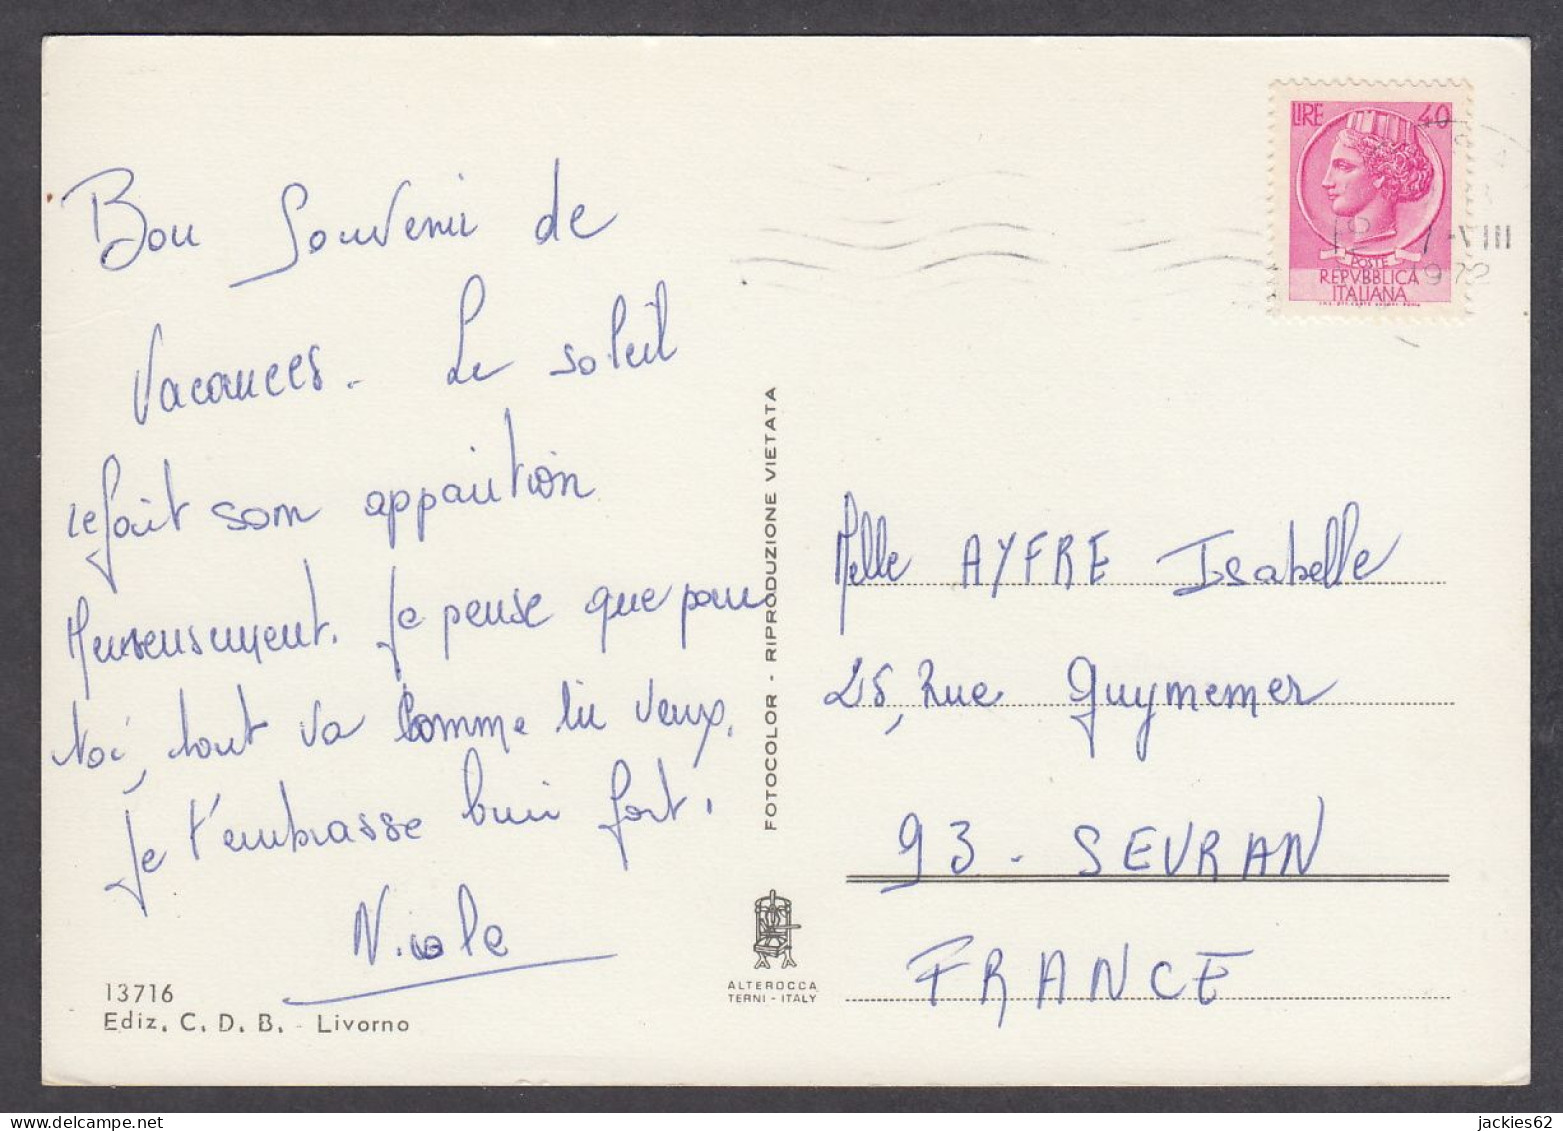 Bon Souvenir de
Vacances. Le soleil
refait son apparition
Heureusement. Je pense que pour
toi, tout va comme tu veux.
Je t'embrasse bien fort.
Nicole
13716
Ediz. C. D. B. - Livorno
FOTOCOLOR - RIPRODUZIONE VIETATA
ALTEROCCA
TERNI - ITALY
LIRE 40
POSTE
REPVBBLICA
ITALIANA
-VIII
1972
Melle AYFRE Isabelle
25, Rue Guynemer
93 - SEVRAN
FRANCE
jackies62